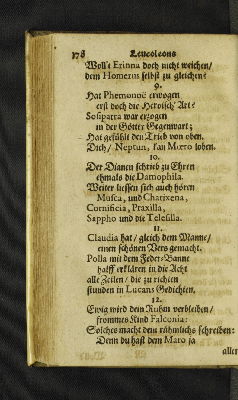 178 Leucoleons
Woll't Erinna doch nicht weichen/
dem Homerus selbst zu gleichen?
9.
Hat Phemonoë erwogen
erst doch die Heroisch' Art?
Sosipatra war erzogen
in der Götter Gegenwart;
Hat gefühlt den Trieb von oben.
Dich/ Neptun, kan Mœro loben.
10.
Der Dianen schrieb zu Ehren
ehmals die Damophila.
Weiter liessen sich auch hörẽ
Musca, und Charixena,
Cornificia, Praxilla,
Sappho und die Telesilla.
11.
Claudia hat/ gleich dem Manne/
einen schönen Vers gemacht.
Polla mit dem Feder-Banne
halff erklären in die Acht
alle Zeilen/ die zu richten
stunden in Lucans Gedichten.
12.
Ewig wird dein Ruhm verbleiben/
frommes Kind Falconia:
Solches macht dein rühmlichs schreiben:
Denn du hast dem Maro ja
aller